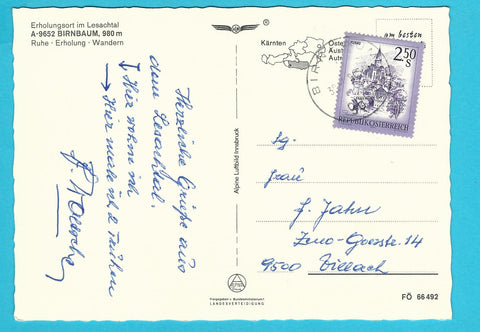 Erholungsort im Lesachtal
A-9652 BIRNBAUM, 980 m
Ruhe · Erholung · Wandern
Herzliche Grüße aus
dem Lesachtal.
Hier wohne ich
Hier
2
Kärnten
am besten
BIRN
2.50
S
REPUBLIK ÖSTERREICH
Alpine Luftbild Innsbruck
Sg.
Frau
J. Jahn
Zeno-Goess-str. 14
9500 Villach
Freigegeben v. Bundesministerium f.
LANDESVERTEIDIGUNG
FÖ 66 492